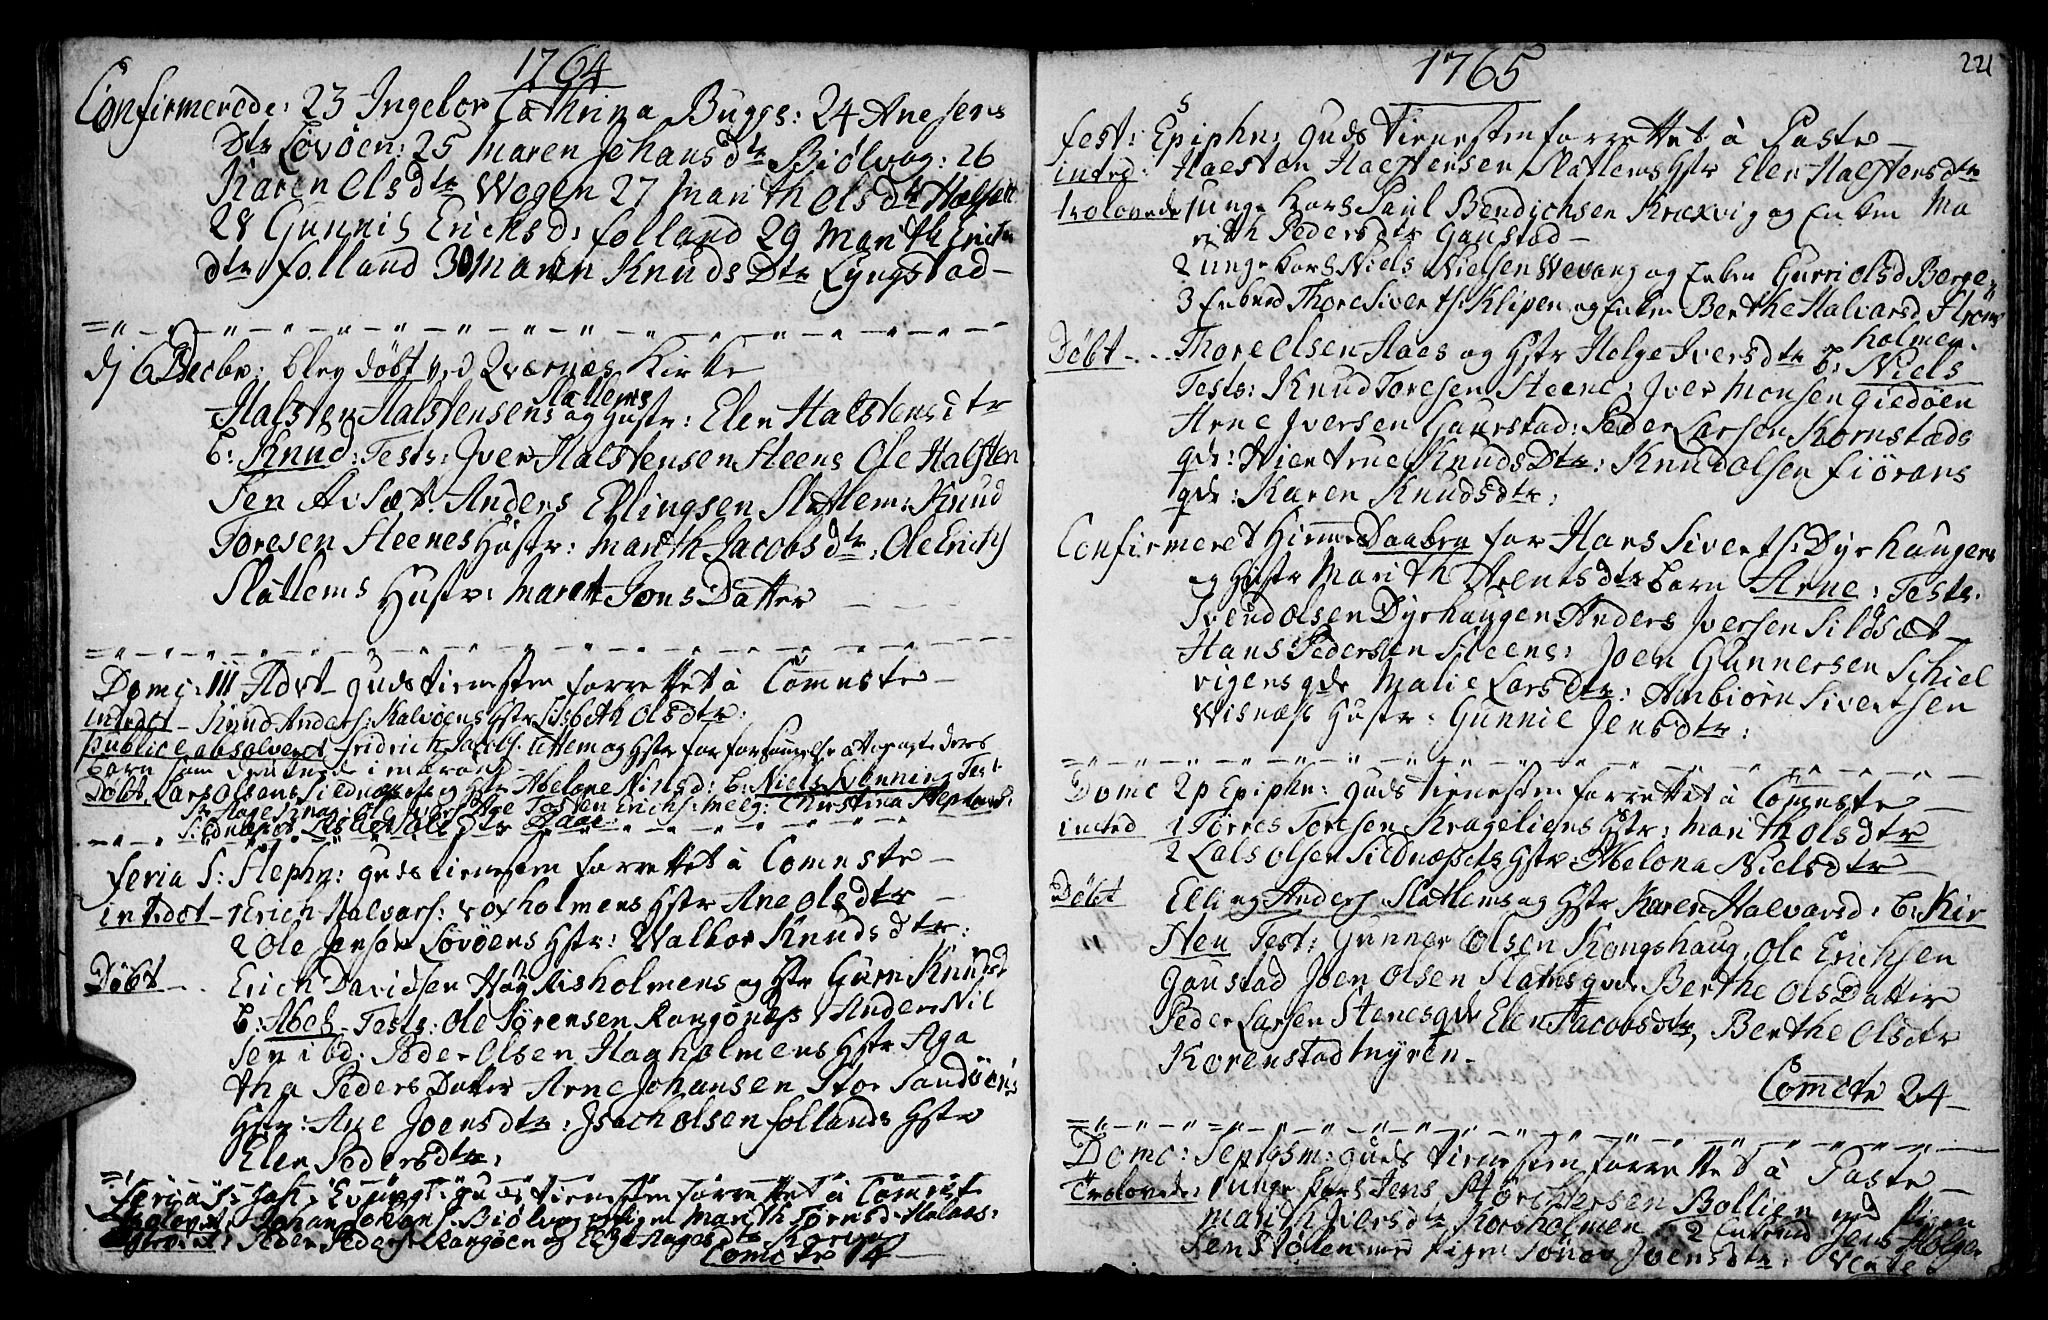 1764
Confirmerede: 23 Ingebor Cathrina Buggs: 24 Ane Jens
Dtr Løvøen: 25 Maren Johansdtr Biølvog: 26
Karen Olsdtr Wogen 27 Marith Olsdtr
28 Gunnil Erichsd: Folland 29 Marith Erichs
dtr Folland 30 Maren Knuds Dtr Lyngstad
dj 6 Decbr: blev døbt ved Qværnæs Kirke
Halsten Halstensens Slatlems og Hustr: Elen Halstensdtr
b: Knud: Tests: Iver Halstensen Steens Ole Halsten
sen Aisæt. Anders Ellingsen Slatlem: Knud
Toresen Steenes Hustr: Marith Jacobsdtr: Ole Erichs
Slatlems Hustr: Maret Jons Datter
Domc: III Advt Guds tienesten forrettet à Comnste
introdct Knud Anders: Kalvøens Hstr Lisbeth Olsdtr:
publice absolveret Fridrich Jacobs: og Hstr for
børn
Døbt. Lars Olsens Sildnæssets og Hstr Abelone Nielsd: b: Niels Henning Tes:
Christina
Feria S: Steph: Guds tienesten forrettet à Comnste
introdct 1 Erich Halvars: Roxholmens Hstr Ane Olsdtr
2 Ole Jensen Løvøens Hstr: Walbor Knudsdtr:
Døbt Erich Davidsen Høg Risholmens og Hstr Gurri Knudsd
b: Abel Tests: Ole Sørensen Rangønes Anders Nil
sen ibd: Peder Olsen Hagholmens Hstr Aga
tha Peders Datter Arne Johansen Stor Sandøens
Hstr: Ane Joensdtr: Isach Olsen Follands Hstr
Elen Pedersdtr:
Feria S: Joh: Evangl: Guds tienesten forrettet à Comnste
Johan Johans: Biølvog og Pigen Marith
Peder Peders: Rangøen og
Comcte 14
1765
221
Fest: Epiphn: Guds tienesten forrettet à Paste
introd: Halsten Halstensen Slatlems Hstr Elen Halstensdtr
trolovede 1 unge Karl Paul Bendichsen Kraxvig og Enken Ma
rith Pedersdtr Gaustad
2 unge Karl Niels Nielsen Wevang og Enken Gurri Olsd Berge
3 Enkmd Thore Siverts: Klipen og Enken Berthe Halvarsd Strøms
holmen.
Døbt Thore Olsen Haes og Hstr Helge Iversdtr b: Niels
Tests: Knud Toresen Steene: Iver Monsen Giedøen
Arne Iversen Gaustad: Peder Larsen Kornstads
qde: Giertrue Knuds Dtr: Knud Olsen Fiørans
qde: Karen Knudsdtr:
Confirmeret Hiemme Daaben for Hans Siverts: Dyrhaugens
og Hstr Marith Arentsdtr barn Arne: Tests.
Svend Olsen Dyrhaugen Anders Iversen Sildsæt
Hans Pedersen Steens: Joen Gunnersen Schiel
vigens qde Malie Lars Dtr: Anbiørn Sivertsen
Wisnæss Hustr: Gunnie Jensdtr:
Domc 2 p Epiphn: Guds tienesten forrettet à Comnste
introd 1 Torres Toresen Krageliens Hstr: Marith Olsdtr
2 Lars Olsen Sildnæssets Hstr Abelona Nielsdtr
Døbt Elling Anders: Slatlems og Hstr Karen Halvarsd: b: Kir
sten Test: Gunner Olsen Kongshaug, Ole Erichsen
Gaustad Joen Olsen Slatems qde Berthe Ols Datter
Peder Larsen Stenes qde Elen Jacobsdtr, Berthe Olsdtr
Korenstadmyren
Comcte 24
Domc: Septgsm: Guds tienesten forrettet à Paste
Trolovede: 1 unge Karl Jens Bollien med Pigen
Marith Iversdtr Korsholmen 2 Enkmd Jens Holgen
sen Stølen med Pigen Joensdtr: